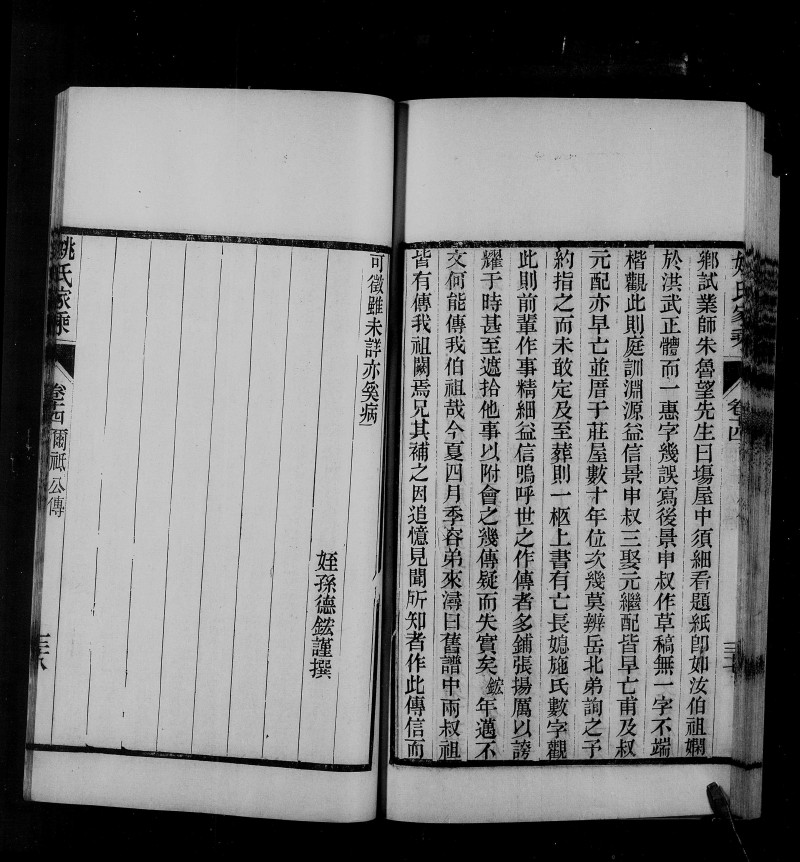 鄉試業師朱魯望先生曰塲屋中須細看題紙卽如汝伯祖嫻
於洪武正體而一惠字幾誤寫後景申叔作草稿無一字不端
楷觀此則庭訓淵源益信景申叔三娶元繼配皆早亡甫及叔
元配亦早亡並厝于莊屋數十年位次幾莫辨岳北弟詢之予
約指之而未敢定及至葬則一柩上書有亡長媳施氏數字觀
此則前輩作事精細益信嗚呼世之作傳者多鋪張揚厲以誇
耀于時甚至遮拾他事以附會之幾傳疑而失實矣鋐年邁不
文何能傳我伯祖哉今夏四月季容弟來潯曰舊譜中兩叔祖
皆有傳我祖闕焉兄其補之因追憶見聞所知者作此傳信而
可徵雖未詳亦奚病
姪孫德鋐謹撰
姚氏家乘
卷十四
爾祇公傳
三十八